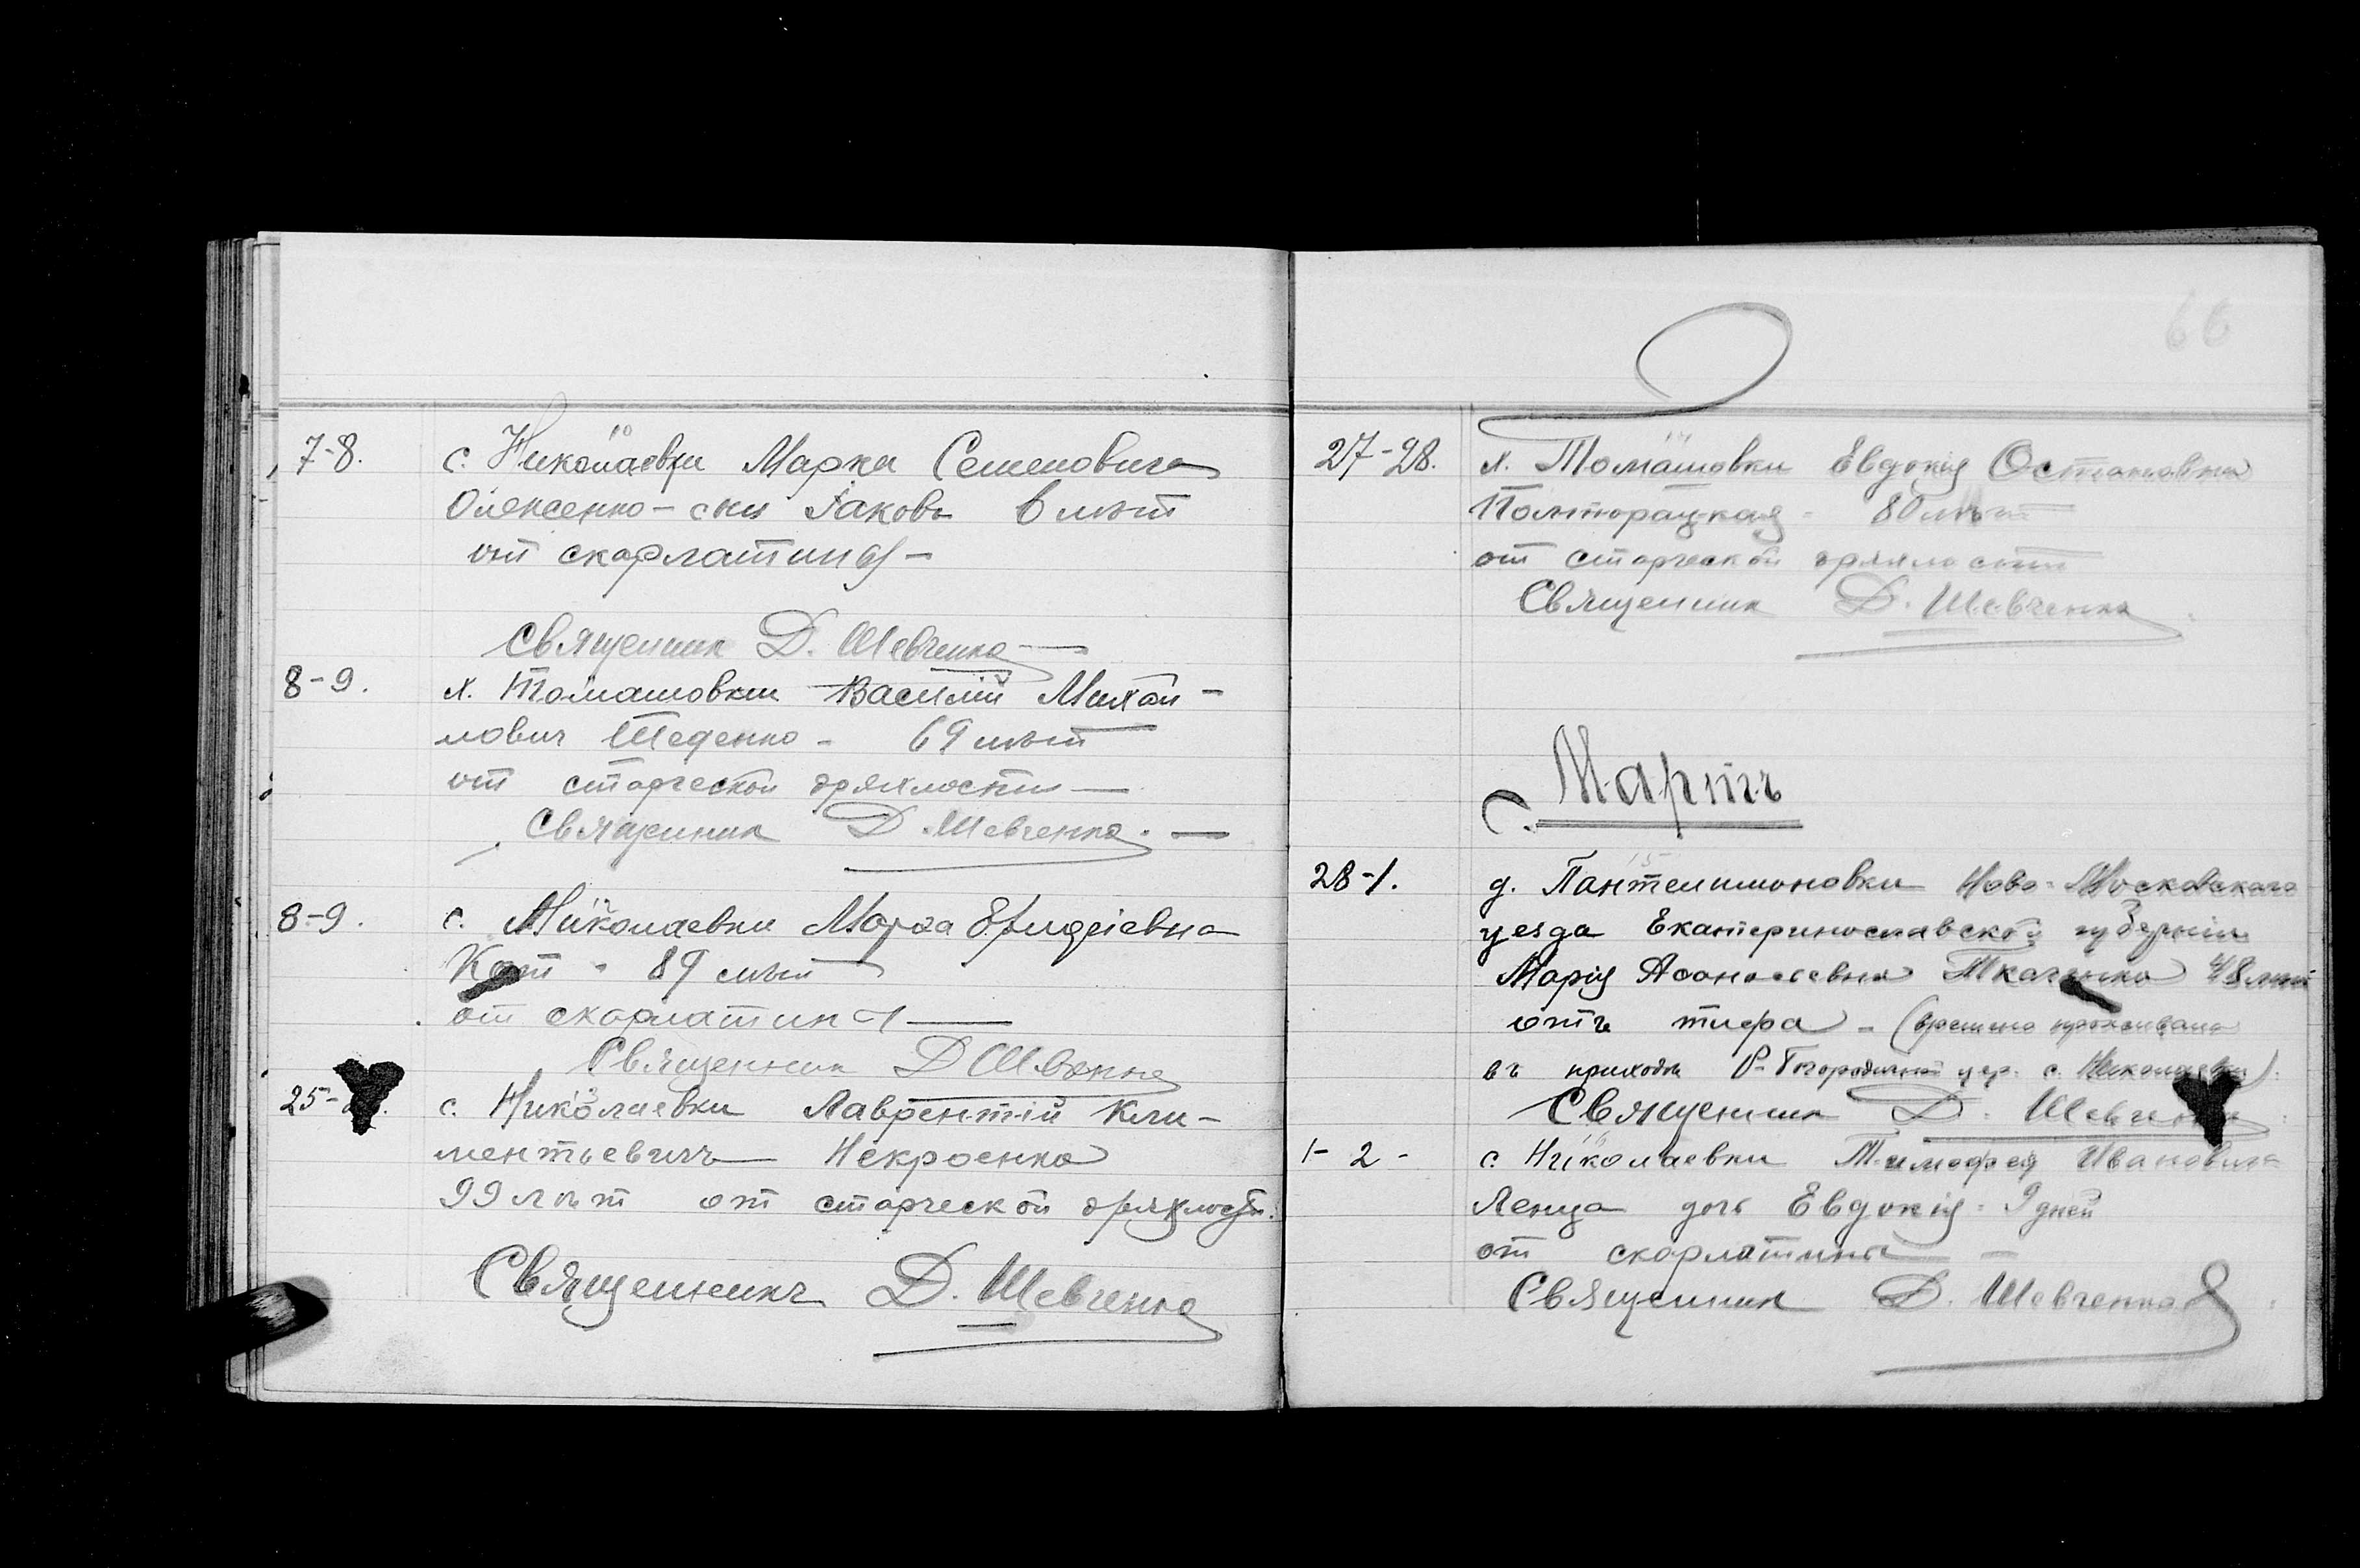 7-8. с. Николаевки Марка Семеновича
Олексенко - сын Iаковъ 6 лѣт
от скарлатины -
Священник Д. Шевченко
8-9. х. Томашовки Василiй Михай-
лович Теденко - 69 лѣт
от старческой дряхлости
Священник Д. Шевченко.
8-9. с. Николаевки Марѳа
89 лѣт
от скарлатины
Священник Д Шевченко
25- с. Николаевки Лаврентiй Кли-
ментьевичъ Некроенко
99 лѣт от старческой дряхлост.
Священникъ Д. Шевченко
66
27-28. х. Томашовки Евдокiя Остаповна
Полторацкая - 80 лѣт
от старческой дряхлости
Священник Д. Шевченко
Мартъ
28-1. д. Пантелимоновки Ново-Московского
уезда Екатеринославской губернiи
Марiя Аѳанасьевна Ткаченко 48 лѣт
отъ тифа - (времено проживала
въ приходѣ Р-Богородичной цер. с. Николаевки).
Священник Д. Шевченко
1-2- с. Николаевки Тимофея Ивановича
Ленца дочь Евдокiя - 9 дней
от скарлатины -
Священник Д. Шевченко